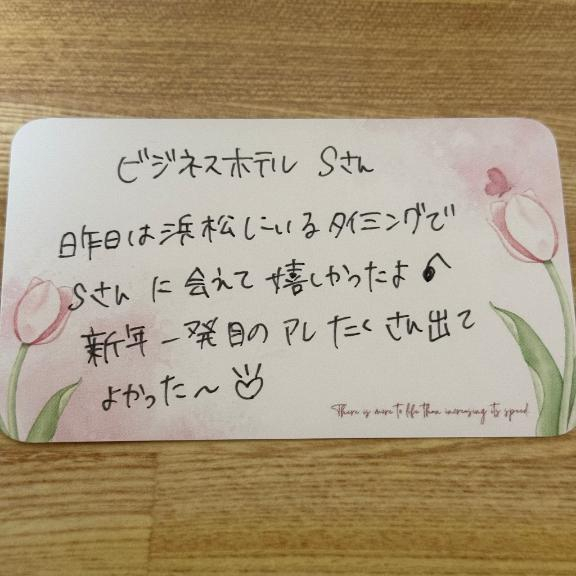 ビジネスホテル Sさん
昨日は浜松にいるタイミングで
Sさん に 会えて 嬉しかったよ
新年一発目の アレ たくさん出て
よかった～
There is more to life than increasing its speed.